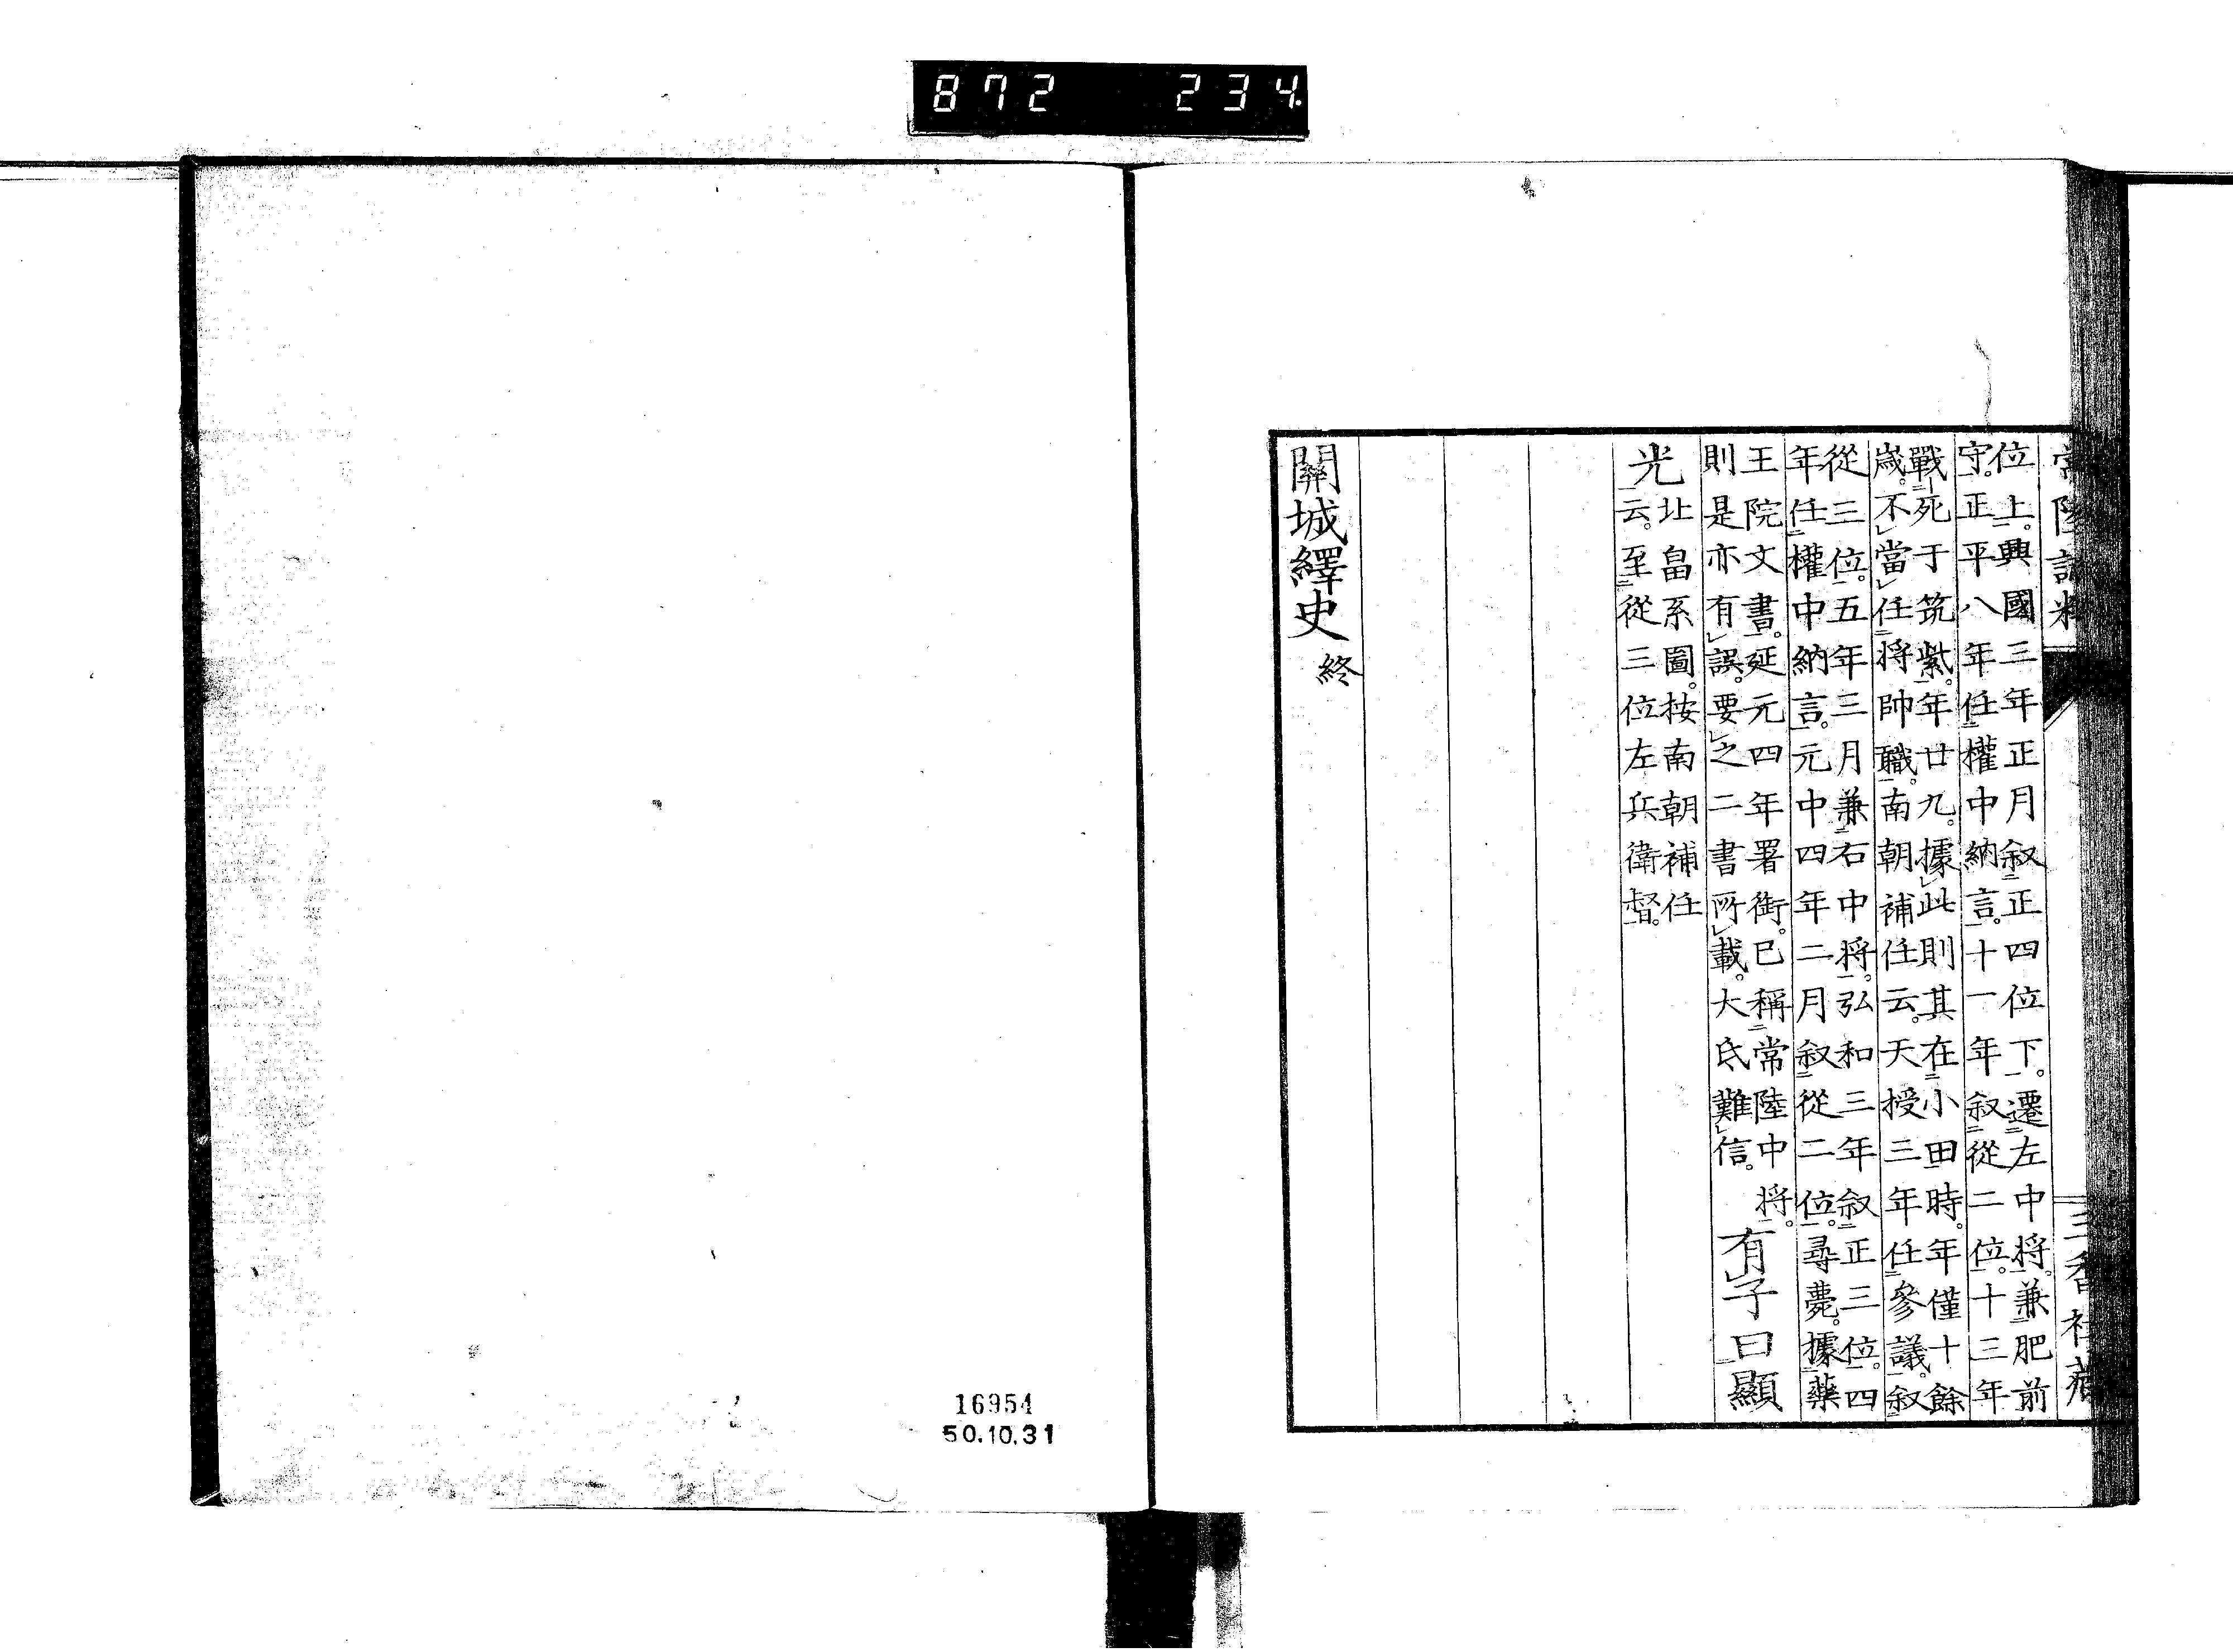 872 234
位上。興國三年正月叙正四位下。遷左中將。兼肥前
守。正平八年任權中納言。十一年叙從二位。十三年
戰死于筑紫。年廿九。據此則其在小田時。年僅十餘
歲。不當任將帥職。南朝補任云。天授三年任參議。叙
從三位。五年三月兼右中將。弘和三年叙正三位。四
年任權中納言。元中四年二月叙從二位。尋薨。據藥
王院文書。延元四年署銜。已稱常陸中將。
則是亦有誤。要之二書所載。大氐難信。
有子曰顯
光
北畠系圖。按南朝補任
云。至從三位左兵衛督。
關城繹史 終
16954
50.10.31